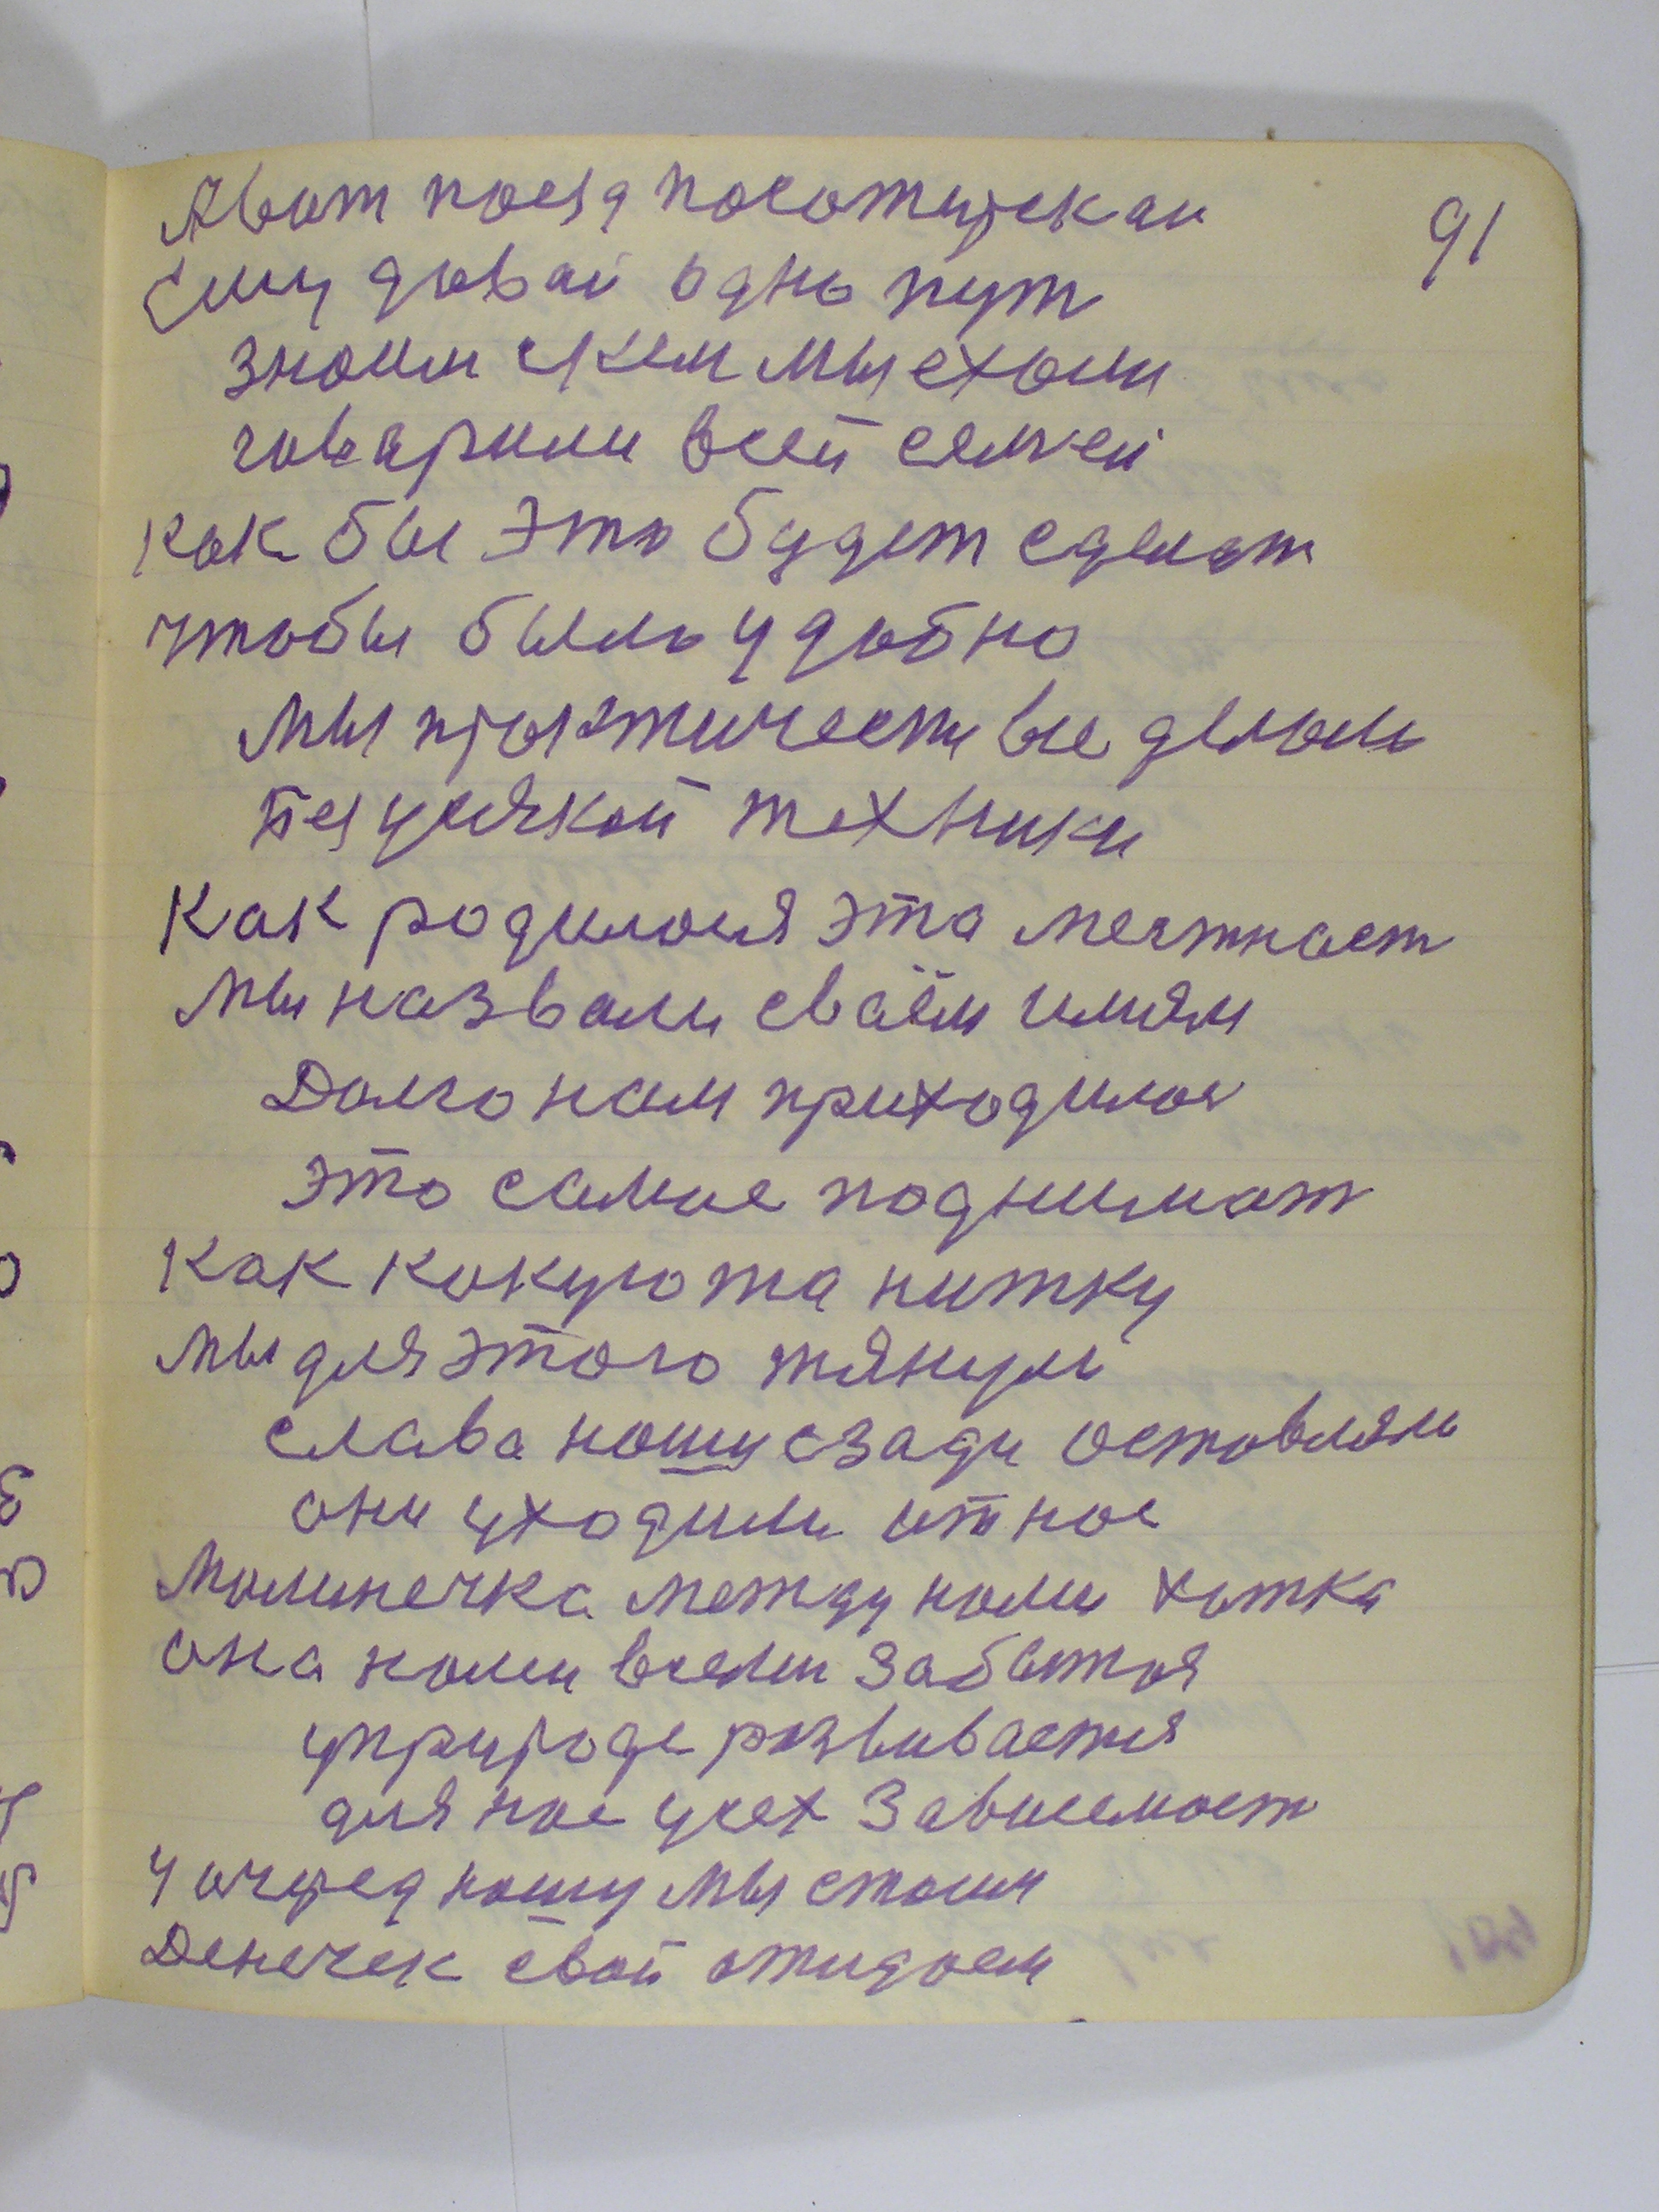 91
Авот поезд посотирскаи
Ему давай одно пут
знаим скем мы ехоли
говарили всей семъей
как бы это будет сделат
чтобы было удобно
мы практичести все делали
Без усякой техники
Как родилося эта местнаст
мы назвали сваём имям
Долго нам приходилос
это самае поднимат
Как какуюта нитку
мы для этого тянули
слава нашу сзади оставляли
они уходили от нас
Малинечка между нами хатка
она нами всеми забытая
уприроде развивается
для нас усех Зависемаст
У очеред нашу мы стаим
Денечек свой отидаем